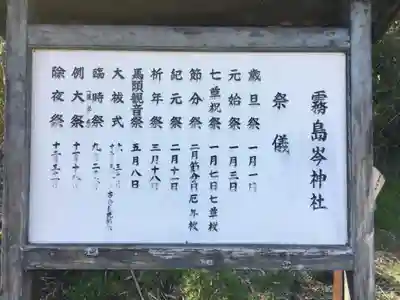 霧島岑神社
祭儀
歳旦祭 一月一日
元始祭 一月三日
七草祝祭 一月七日七草粥
節分祭 二月節分日厄年祓
紀元祭 二月十一日
祈年祭 三月十八日
馬頭観音祭 五月八日
大祓式
臨時祭 九月二十
例大祭 十一月十八
除夜祭 十二月三十一日